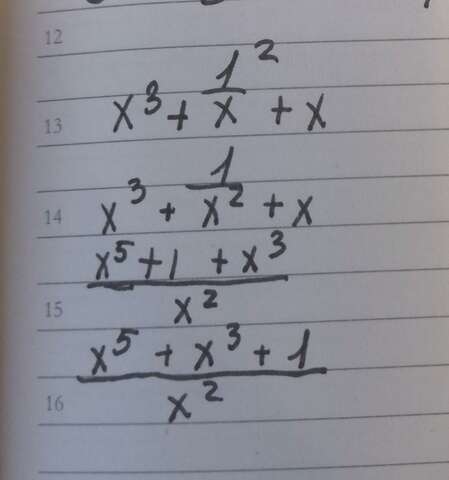 12
13 x³ + 1²/x + x
14 x³ + 1/x² + x
15 (x⁵ + 1 + x³)/x²
16 (x⁵ + x³ + 1)/x²